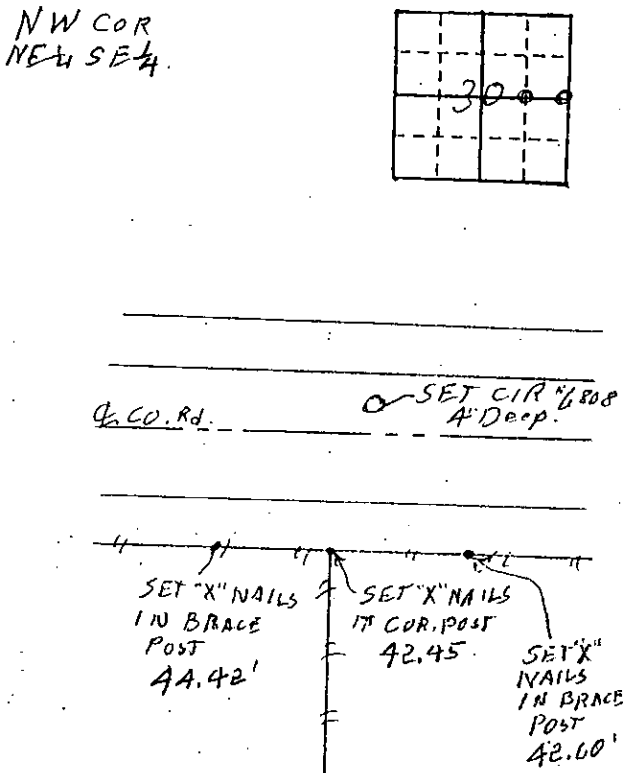 NW COR
NE¼ SE¼.
30
SET CIR #6808
4" Deep.
℄ CO. Rd.
SET "X" NAILS
IN BRACE
POST
44.42'
SET "X" NAILS
COR. POST
42.45
SET "X"
NAILS
IN BRACE
POST
42.60'